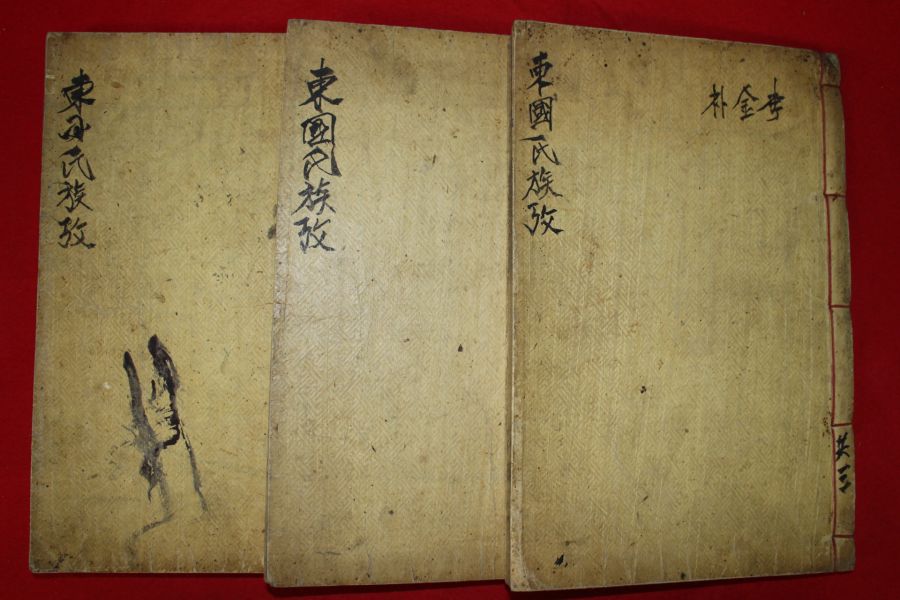 李金朴
東國氏族攷
共三
東國氏族攷
東国氏族攷